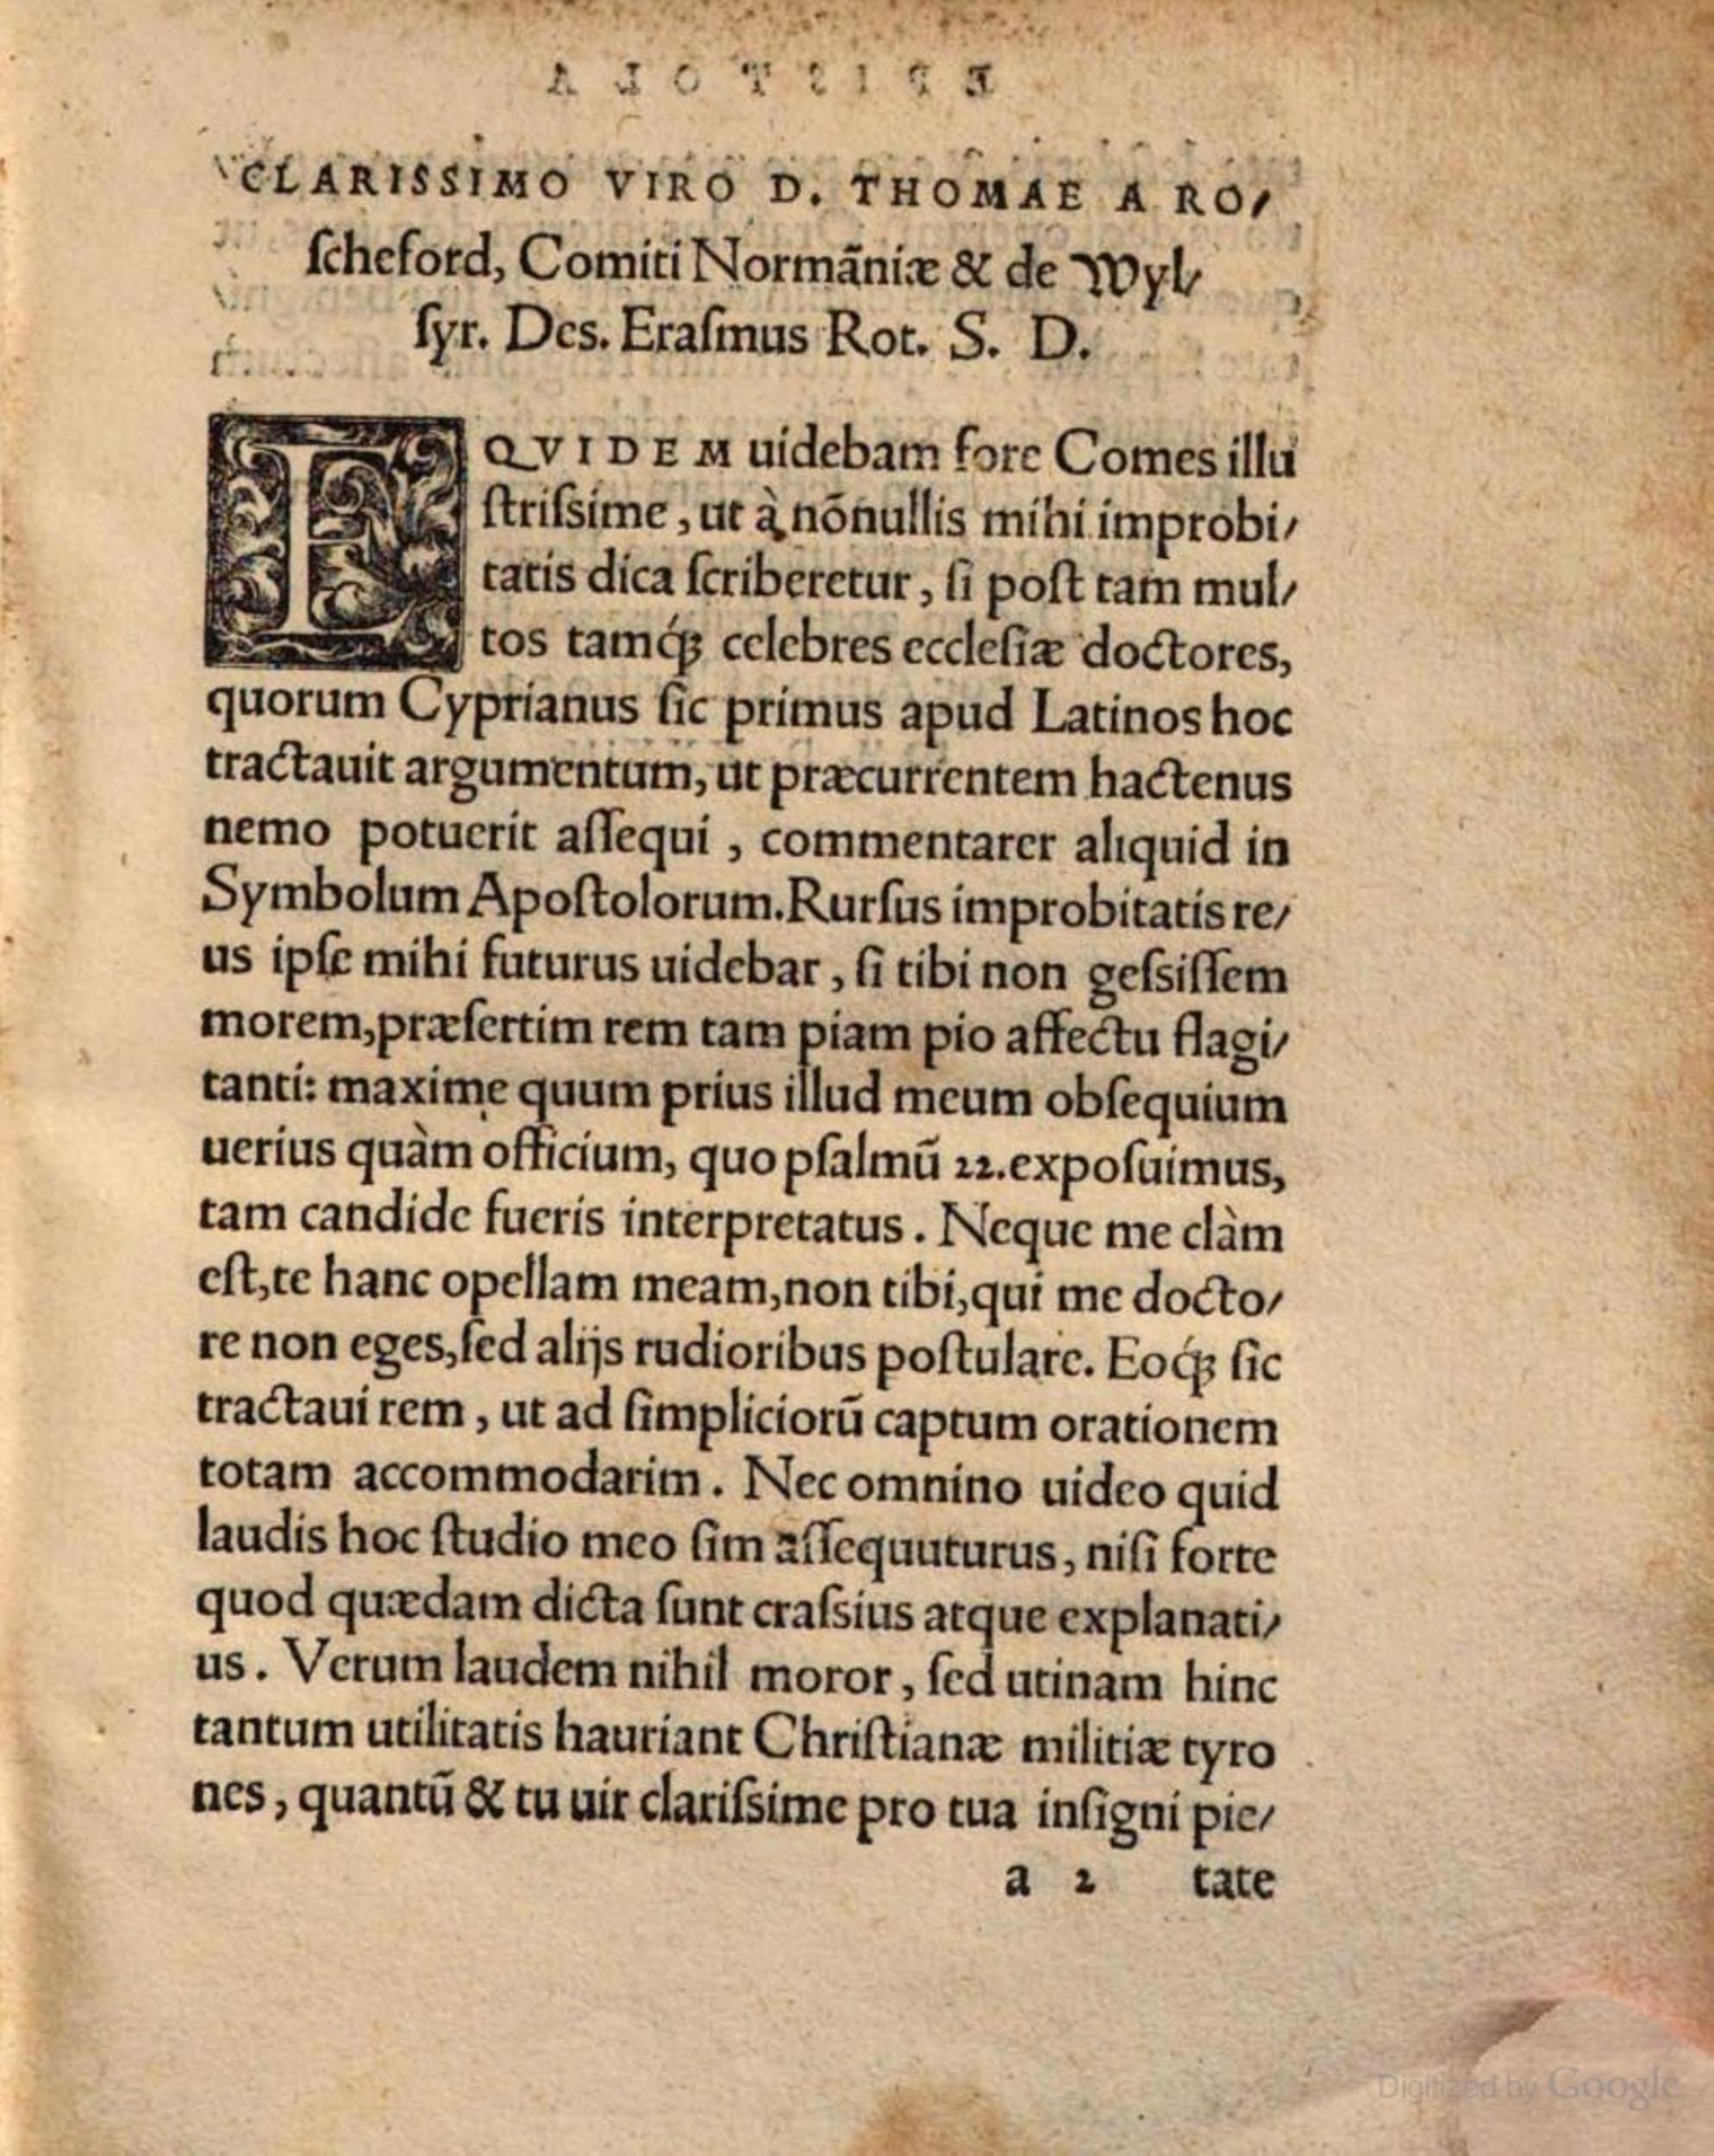 CLARISSIMO VIRO D. THOMAE A RO/
ſcheford, Comiti Normãniæ & de Wyl/
ſyr. Des. Eraſmus Rot. S. D.
EQVIDEM uidebam fore Comes illu
ſtriſsime, ut à nõnullis mihi improbi/
tatis dica ſcriberetur, ſi poſt tam mul/
tos tamq́ꝫ celebres eccleſiæ doctores,
quorum Cyprianus ſic primus apud Latinos hoc
tractauit argumentum, ut præcurrentem hactenus
nemo potuerit aſſequi, commentarer aliquid in
Symbolum Apoſtolorum. Rurſus improbitatis re/
us ipſe mihi futurus uidebar, ſi tibi non geſsiſſem
morem, præſertim rem tam piam pio affectu flagi/
tanti: maxime quum prius illud meum obſequium
uerius quàm officium, quo pſalmũ 22. expoſuimus,
tam candide fueris interpretatus. Neque me clàm
eſt, te hanc opellam meam, non tibi, qui me docto/
re non eges, ſed alijs rudioribus poſtulare. Eoq́ꝫ ſic
tractaui rem, ut ad ſimpliciorũ captum orationem
totam accommodarim. Nec omnino uideo quid
laudis hoc ſtudio meo ſim aſſequuturus, niſi forte
quod quædam dicta ſunt craſsius atque explanati/
us. Verum laudem nihil moror, ſed utinam hinc
tantum utilitatis hauriant Chriſtianæ militiæ tyro
nes, quantũ & tu uir clariſsime pro tua inſigni pie/
a 2 tate
Digitized by Google